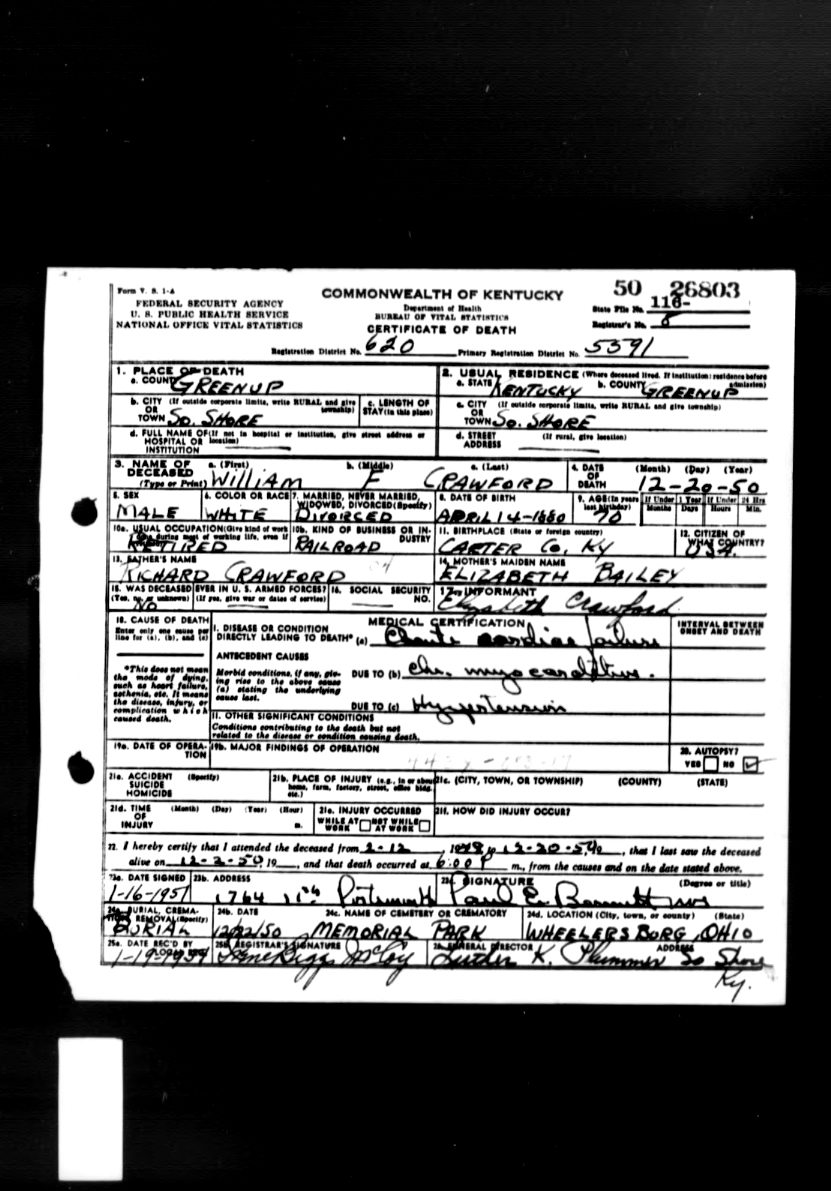 Form V. S. 1-A
FEDERAL SECURITY AGENCY
U. S. PUBLIC HEALTH SERVICE
NATIONAL OFFICE VITAL STATISTICS
COMMONWEALTH OF KENTUCKY
Department of Health
BUREAU OF VITAL STATISTICS
CERTIFICATE OF DEATH
50 26803
State File No. 116-
Registrar's No. 8
Registration District No. 620 Primary Registration District No. 5591
1. PLACE OF DEATH
a. COUNTY GREENUP
2. USUAL RESIDENCE (Where deceased lived. If institution: residence before admission)
a. STATE KENTUCKY b. COUNTY GREENUP
b. CITY (If outside corporate limits, write RURAL and give township)
OR TOWN SO. SHORE
c. LENGTH OF STAY (in this place)
c. CITY (If outside corporate limits, write RURAL and give township)
OR TOWN SO. SHORE
d. FULL NAME OF (If not in hospital or institution, give street address or location)
HOSPITAL OR INSTITUTION
d. STREET ADDRESS (If rural, give location)
3. NAME OF DECEASED (Type or Print)
a. (First) WILLIAM b. (Middle) F c. (Last) CRAWFORD
4. DATE OF DEATH (Month) (Day) (Year) 12-20-50
5. SEX MALE
6. COLOR OR RACE WHITE
7. MARRIED, NEVER MARRIED, WIDOWED, DIVORCED (Specify) DIVORCED
8. DATE OF BIRTH APRIL 14-1880
9. AGE (In years last birthday) 70
If Under 1 Year Months Days If Under 24 Hrs Hours Min.
10a. USUAL OCCUPATION (Give kind of work done during most of working life, even if retired) RETIRED
10b. KIND OF BUSINESS OR INDUSTRY RAILROAD
11. BIRTHPLACE (State or foreign country) CARTER CO. KY
12. CITIZEN OF WHAT COUNTRY? USA.
13. FATHER'S NAME RICHARD CRAWFORD
14. MOTHER'S MAIDEN NAME ELIZABETH BAILEY
15. WAS DECEASED EVER IN U. S. ARMED FORCES?
(Yes, no, or unknown) (If yes, give war or dates of service) NO
16. SOCIAL SECURITY NO.
17. INFORMANT Elizabeth Crawford
18. CAUSE OF DEATH
Enter only one cause per line for (a), (b), and (c)
MEDICAL CERTIFICATION
INTERVAL BETWEEN ONSET AND DEATH
I. DISEASE OR CONDITION DIRECTLY LEADING TO DEATH* (a) cardiac failure
*This does not mean the mode of dying, such as heart failure, asthenia, etc. It means the disease, injury, or complication which caused death.
ANTECEDENT CAUSES
Morbid conditions, if any, giving rise to the above cause (a) stating the underlying cause last.
DUE TO (b) Chr. myocarditis.
DUE TO (c) Hypertension
II. OTHER SIGNIFICANT CONDITIONS
Conditions contributing to the death but not related to the disease or condition causing death.
19a. DATE OF OPERATION
19b. MAJOR FINDINGS OF OPERATION
20. AUTOPSY?
YES NO ✓
21a. ACCIDENT SUICIDE HOMICIDE (Specify)
21b. PLACE OF INJURY (e.g., in or about home, farm, factory, street, office bldg. etc.)
21c. (CITY, TOWN, OR TOWNSHIP) (COUNTY) (STATE)
21d. TIME OF INJURY (Month) (Day) (Year) (Hour) m.
21e. INJURY OCCURRED
WHILE AT WORK NOT WHILE AT WORK
21f. HOW DID INJURY OCCUR?
22. I hereby certify that I attended the deceased from 2-12, to 12-20-50, that I last saw the deceased
alive on 12-2-50, 19 , and that death occurred at 6:00 P m., from the causes and on the date stated above.
23a. DATE SIGNED 1-16-1951
23b. ADDRESS 1764 11th Portsmouth
23c. SIGNATURE (Degree or title) Paul E.
24a. BURIAL, CREMATION, REMOVAL (Specify) BURIAL
24b. DATE 12/22/50
24c. NAME OF CEMETERY OR CREMATORY MEMORIAL PARK
24d. LOCATION (City, town, or county) (State) WHEELERSBURG, OHIO
25a. DATE REC'D BY LOCAL REG. 1-19-1951
25b. REGISTRAR'S SIGNATURE Irene Biggs McCoy
26. FUNERAL DIRECTOR ADDRESS Luther K. Plummer So Shore
Ky.